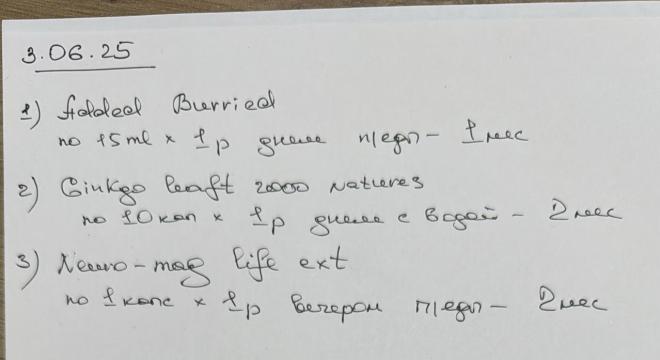 3.06.25
1) Added Burried
по 15ml x 1р днем п/еды - 1 мес
2) Ginkgo leaft 2000 Natures
по 10 кап x 1р днем с водой - 2 мес
3) Neuro-mag life ext
по 1 капс x 1р вечером п/еды - 2 мес